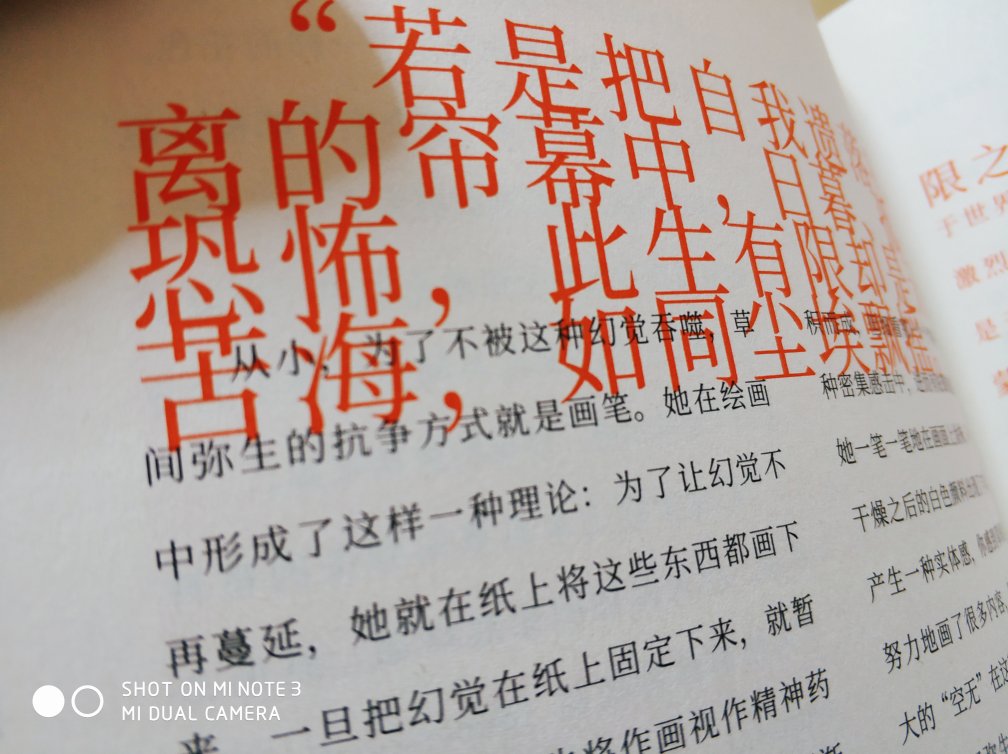 “若是把自我遗
离的帘幕中，日暮
恐怖，此生有限却是
苦海，如同尘埃飘
从小，为了不被这种幻觉吞噬，草
间弥生的抗争方式就是画笔。她在绘画
中形成了这样一种理论：为了让幻觉不
再蔓延，她就在纸上将这些东西都画下
来，一旦把幻觉在纸上固定下来，就暂
将作画视作精神药
积而成
种密集感击中，
她一笔一笔地在画面上
干燥之后的白色颜料
产生一种实体感，你
努力地画了很多内容，
大的“空无”在这
限之
于世界
激烈
是
SHOT ON MI NOTE 3
MI DUAL CAMERA